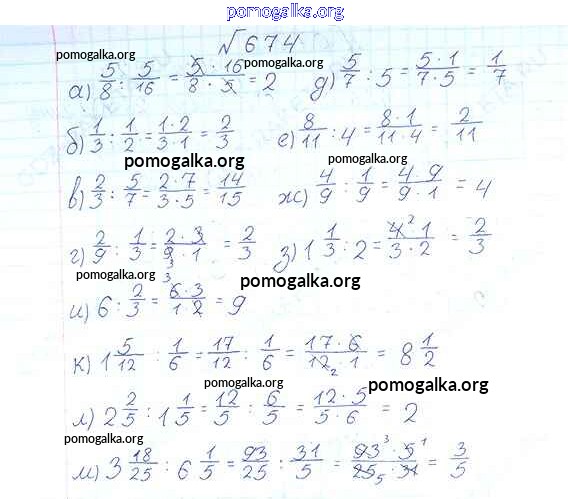 pomogalka.org
√674
pomogalka.org pomogalka.org
а) 5/8 : 5/16 = 5·16/8·5 = 2 д) 5/7 : 5 = 5·1/7·5 = 1/7
pomogalka.org
б) 1/3 : 1/2 = 1·2/3·1 = 2/3 е) 8/11 : 4 = 8·1/11·4 = 2/11
pomogalka.org pomogalka.org
в) 2/3 : 5/7 = 2·7/3·5 = 14/15 ж) 4/9 : 1/9 = 4·9/9·1 = 4
pomogalka.org pomogalka.org
г) 2/9 : 1/3 = 2·3/9·1 = 2/3 з) 1 1/3 : 2 = 4·1/3·2 = 2/3
pomogalka.org pomogalka.org
и) 6 : 2/3 = 6·3/1·2 = 9
pomogalka.org
к) 1 5/12 : 1/6 = 17/12 : 1/6 = 17·6/12·1 = 8 1/2
pomogalka.org pomogalka.org
л) 2 2/5 : 1 1/5 = 12/5 : 6/5 = 12·5/5·6 = 2
pomogalka.org
м) 3 18/25 : 6 1/5 = 93/25 : 31/5 = 93·5/25·31 = 3/5